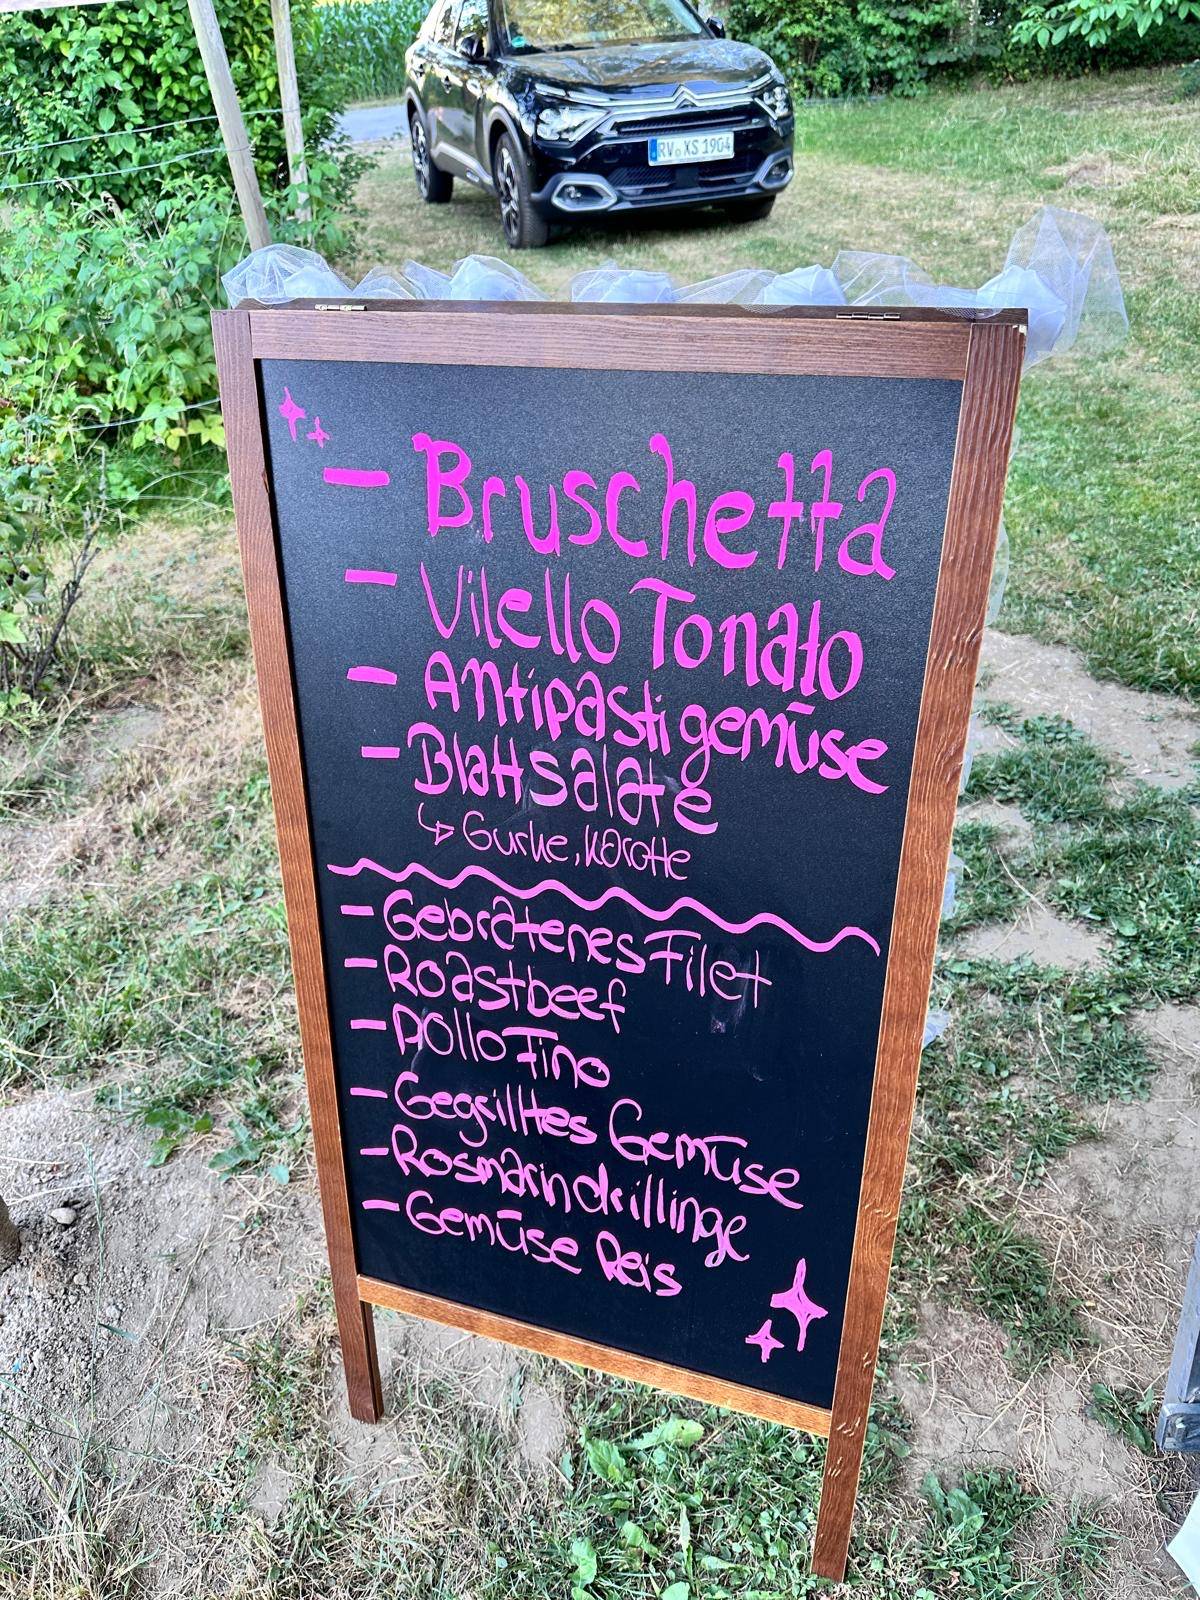 RV XS 1904
- Bruschetta
- Vilello Tonato
- Antipasti gemüse
- Blattsalate
↳ Gurke, Karotte
- Gebratenes Filet
- Roastbeef
- Pollo Fino
- Gegrilltes Gemüse
- Rosmarindrillinge
- Gemüse Reis